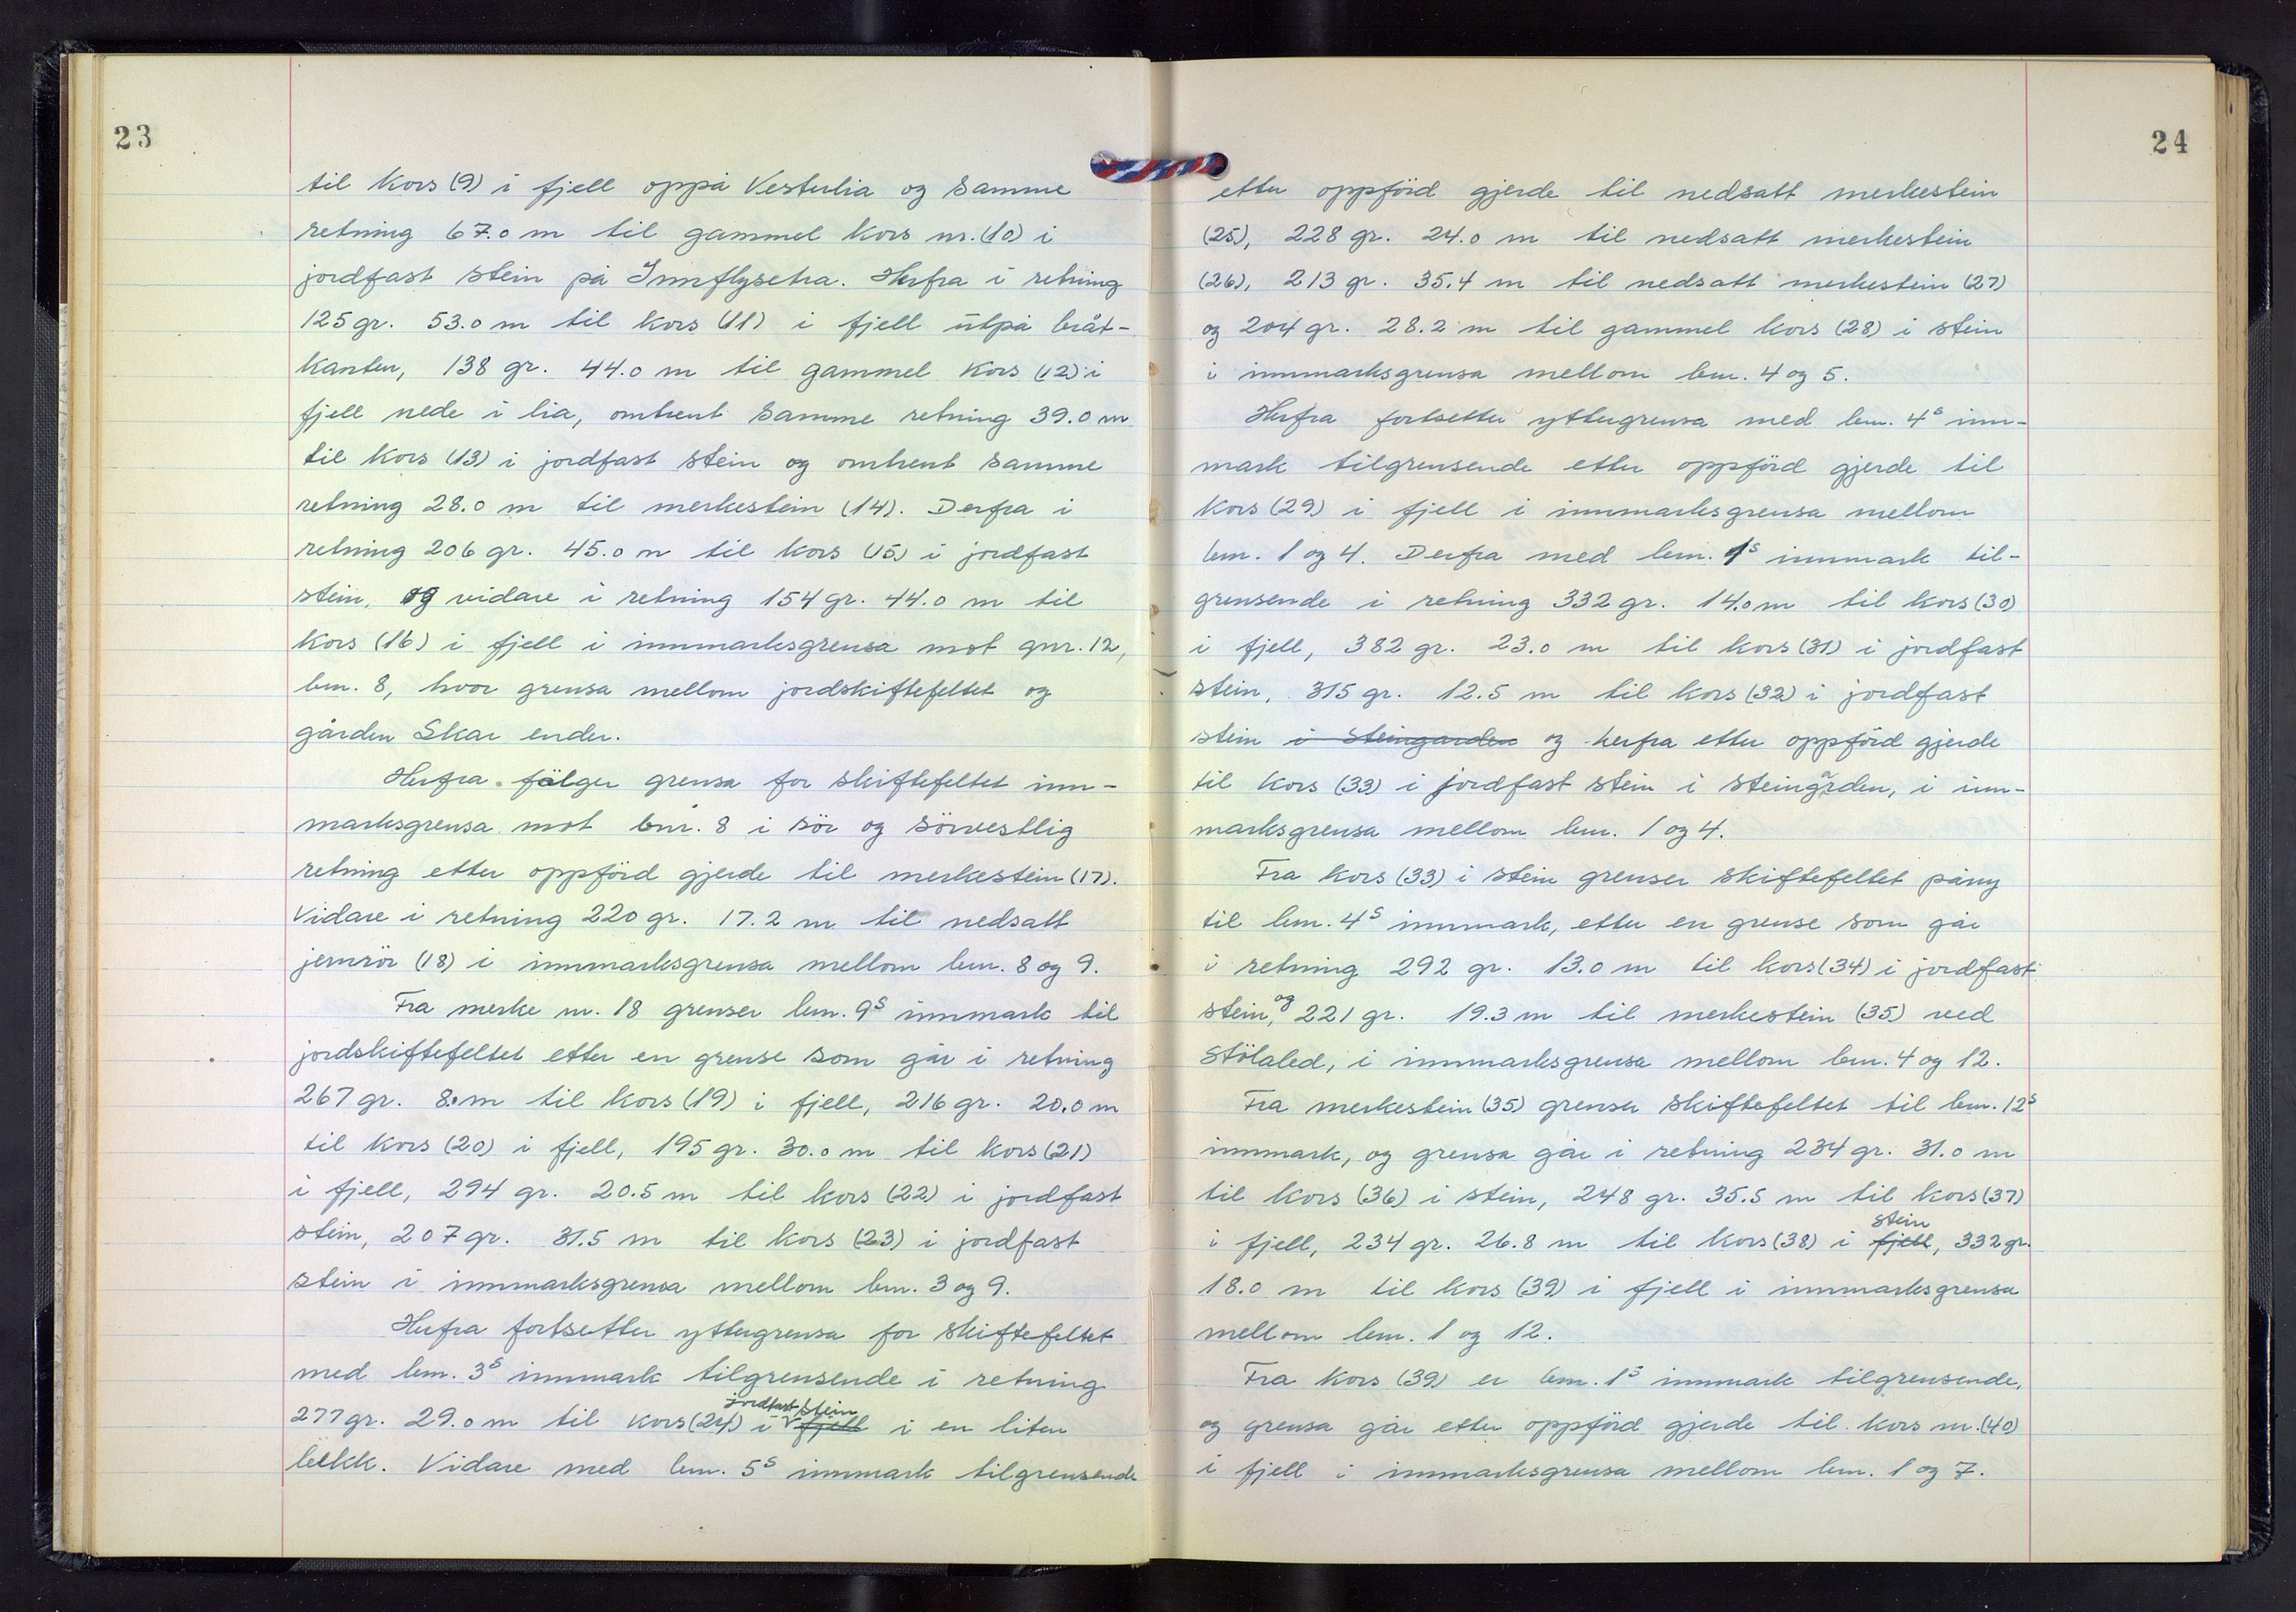 23
til kors (9) i fjell oppå Vesterlia og samme
retning 67.0 m til gammel kors nr. (10) i
jordfast stein på Innflysetra. Herfra i retning
125 gr. 53.0 m til kors (11) i fjell utpå bråt-
kanten, 138 gr. 44.0 m til gammel kors (12) i
fjell nede i lia, omtrent samme retning 39.0 m
til kors (13) i jordfast stein og omtrent samme
retning 28.0 m til merkestein (14). Derfra i
retning 206 gr. 45.0 m til kors (15) i jordfast
stein, og vidare i retning 154 gr. 44.0 m til
kors (16) i fjell i innmarksgrensa mot gnr. 12,
bnr. 8, hvor grensa mellom jordskiftefeltet og
gården Skar ender.
Herfra følger grensa for skiftefeltet inn-
marksgrensa mot bnr. 8 i sör og sörvestlig
retning etter oppförd gjerde til merkestein (17).
Vidare i retning 220 gr. 17.2 m til nedsatt
jernrör (18) i innmarksgrensa mellom bnr. 8 og 9.
Fra merke nr. 18 grenser bnr. 9s innmark til
jordskiftefeltet etter en grense som går i retning
267 gr. 8.0 m til kors (19) i fjell, 216 gr. 20.0 m
til kors (20) i fjell, 195 gr. 30.0 m til kors (21)
i fjell, 294 gr. 20.5 m til kors (22) i jordfast
stein, 207 gr. 31.5 m til kors (23) i jordfast
stein i innmarksgrensa mellom bnr. 3 og 9.
Herfra fortsetter yttergrensa for skiftefeltet
med bnr. 3s innmark tilgrensende i retning
jordfast stein
277 gr. 29.0 m til kors (24) i fjell i en liten
bekk. Vidare med bnr. 5s innmark tilgrensende
24
etter oppförd gjerde til nedsatt merkestein
(25), 228 gr. 24.0 m til nedsatt merkestein
(26), 213 gr. 35.4 m til nedsatt merkestein (27)
og 204 gr. 28.2 m til gammel kors (28) i stein
i innmarksgrensa mellom bnr. 4 og 5.
Herfra fortsetter yttergrensa med bnr. 4s inn-
mark tilgrensende etter oppförd gjerde til
kors (29) i fjell i innmarksgrensa mellom
bnr. 1 og 4. Derfra med bnr. 1s innmark til-
grensende i retning 332 gr. 14.0 m til kors (30)
i fjell, 382 gr. 23.0 m til kors (31) i jordfast
stein, 315 gr. 12.5 m til kors (32) i jordfast
stein i steingarden og herfra etter oppförd gjerde
til kors (33) i jordfast stein i steingården, i inn-
marksgrensa mellom bnr. 1 og 4.
Fra kors (33) i stein grenser skiftefeltet påny
til bnr. 4s innmark, etter en grense som går
i retning 292 gr. 13.0 m til kors (34) i jordfast
stein, og 221 gr. 19.3 m til merkestein (35) ved
Stölaled, i innmarksgrensa mellom bnr. 4 og 12.
Fra merkestein (35) grenser skiftefeltet til bnr. 12s
innmark, og grensa går i retning 234 gr. 31.0 m
til kors (36) i stein, 248 gr. 35.5 m til kors (37)
stein
i fjell, 234 gr. 26.8 m til kors (38) i fjell, 332 gr.
18.0 m til kors (39) i fjell i innmarksgrensa
mellom bnr. 1 og 12.
Fra kors (39) er bnr. 1s innmark tilgrensende,
og grensa går etter oppförd gjerde til kors nr. (40)
i fjell i innmarksgrensa mellom bnr. 1 og 7.